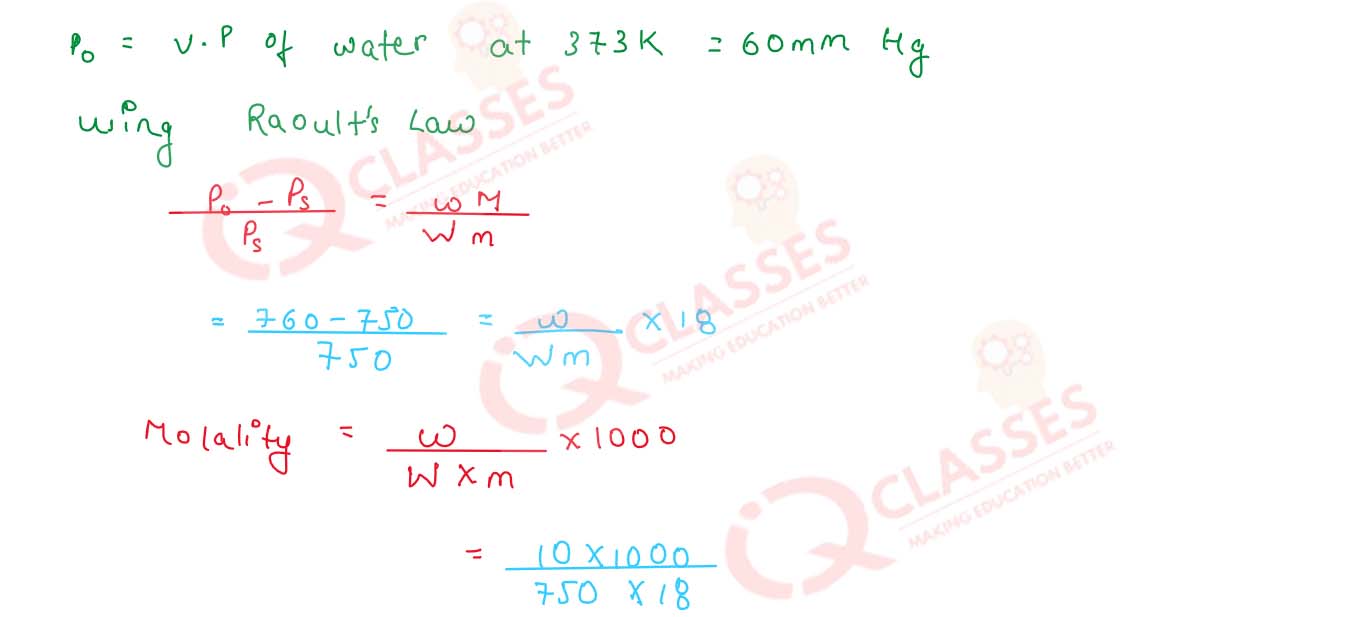 P₀ = V.P of water at 373K = 60mm Hg
wing Raoult's Law
P₀ - Pₛ / Pₛ = w M / W m
= 760 - 750 / 750 = w / W m × 18
Molality = w / W × m × 1000
= 10 × 1000 / 750 × 18
CLASSES
MAKING EDUCATION BETTER
CLASSES
MAKING EDUCATION BETTER
CLASSES
MAKING EDUCATION BETTER